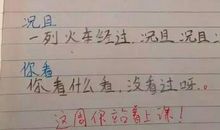 况且
一列火车经过，况且况且：
你看
你看什么看，没看过呀。
这周你站着上课！